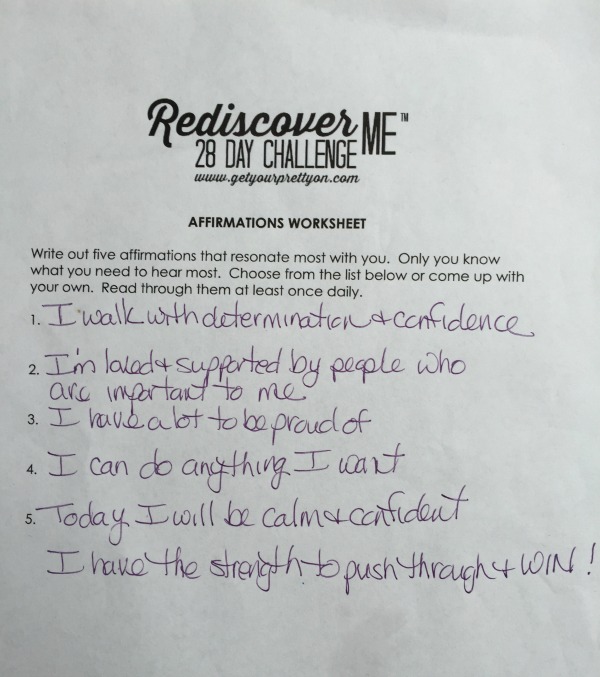 Rediscover ME™
28 DAY CHALLENGE
www.getyourprettyon.com
AFFIRMATIONS WORKSHEET
Write out five affirmations that resonate most with you. Only you know
what you need to hear most. Choose from the list below or come up with
your own. Read through them at least once daily.
1. I walk with determination & confidence
2. I'm loved & supported by people who
are important to me
3. I have a lot to be proud of
4. I can do anything I want
5. Today I will be calm & confident
I have the strength to push through & WIN!